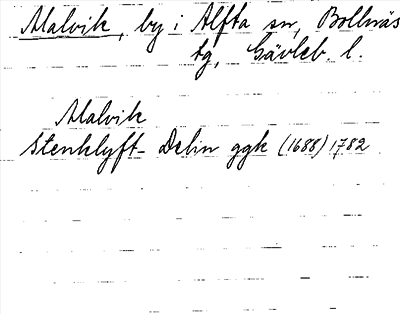 Malvik, by i Alfta sn, Bollnäs
tg, Gävleb. l.
Malvik
Stenklyft- Delin ggk (1688) 1782